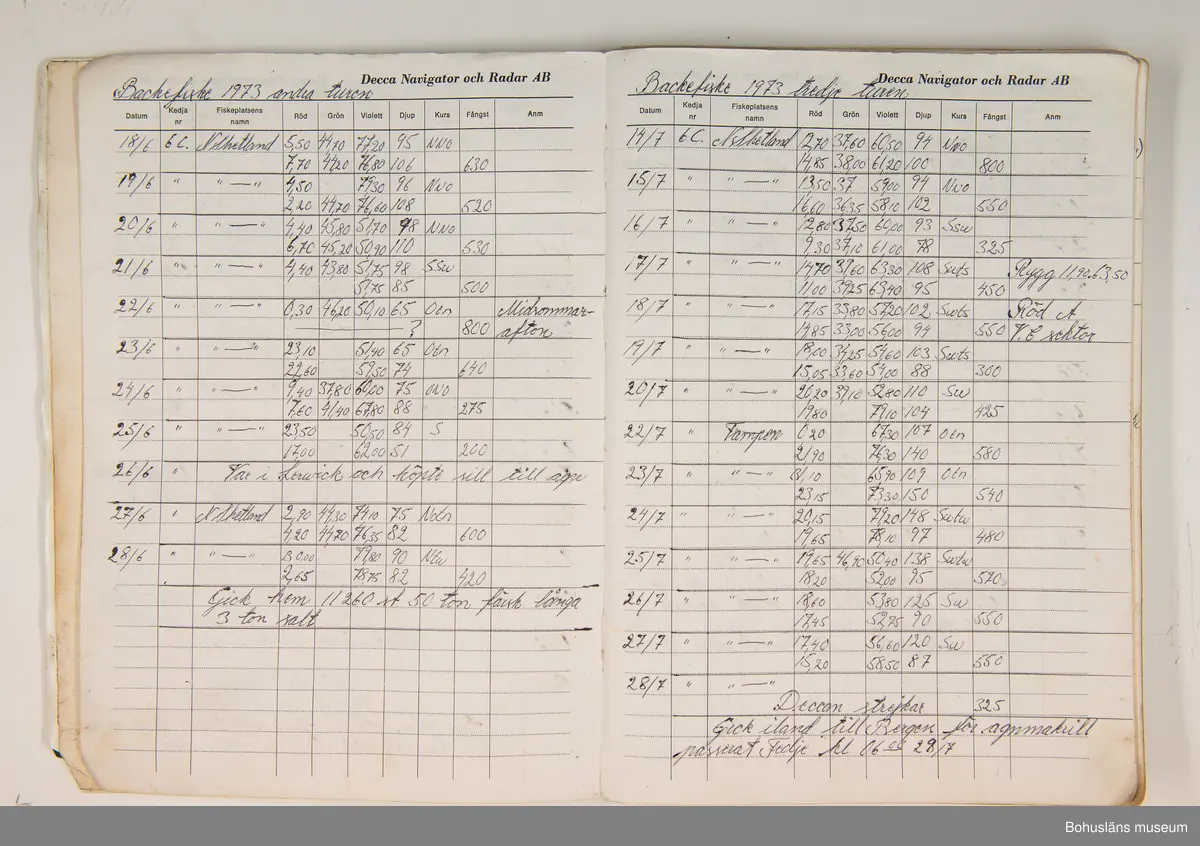 Decca Navigator och Radar AB
Backefiske 1973 andra turen
Datum Kedja nr Fiskeplatsens namn Röd Grön Violett Djup Kurs Fångst Anm
18/6 6C. N Shetland 5,50 44,10 77,20 95 NNO
7,70 44,20 76,80 106 630
19/6 " " — " 4,50 79,30 96 NNO
2,20 44,70 76,60 108 520
20/6 " " — " 4,40 45,80 51,70 98 NNO
6,70 45,20 50,90 110 530
21/6 " " — " 4,40 43,80 51,75 98 SSW
51,75 85 500
22/6 " " — " 0,30 46,20 50,10 65 Otn Midsommar-
? 800 afton
23/6 " " — " 23,10 51,40 65 Otn
22,60 59,50 74 640
24/6 " " — " 9,40 37,80 60,00 75 ONO
7,60 41,40 67,80 88 275
25/6 " " — " 23,50 50,50 84 S
17,00 62,00 51 200
26/6 " Var i Lerwick och köpte sill till agn
27/6 " N Shetland 2,90 44,30 74,10 75 Notn
4,20 44,70 76,35 82 600
28/6 " " — " 0,00 79,80 90 NW
2,65 78,75 82 420
Gick hem 11260 st 50 ton färsk långa
3 ton salt
Decca Navigator och Radar AB
Backefiske 1973 tredje turen
Datum Kedja nr Fiskeplatsens namn Röd Grön Violett Djup Kurs Fångst Anm
14/7 6C. N Shetland 12,70 37,60 60,50 94 NNO
14,85 38,00 61,20 100 800
15/7 " " — " 13,50 37 59,00 94 NNO
16,60 36,35 58,10 102 550
16/7 " " — " 12,80 37,50 60,00 93 SSW
9,30 37,10 61,00 78 325
17/7 " " — " 14,70 33,60 63,30 108 Swts Rygg 11.90.63,50
11,00 39,25 63,40 95 450
18/7 " " — " 17,15 33,80 57,20 102 Swts Röd A
14,85 33,00 56,00 94 550 V. E sektor
19/7 " " — " 18,00 34,25 54,60 103 Swts
15,05 33,60 54,00 88 300
20/7 " " — " 20,20 39,10 52,80 110 SW
19,80 79,10 104 425
22/7 " Tampen 0,20 67,30 107 Otn
21,90 76,30 140 580
23/7 " " — " 81,10 65,90 109 Otn
23,15 73,30 150 540
24/7 " " — " 20,15 79,20 148 Swtw
19,65 78,10 97 480
25/7 " " — " 19,65 46,90 50,40 138 Swtw
18,20 52,00 95 520
26/7 " " — " 18,60 53,80 125 Sw
17,45 52,75 90 550
27/7 " " — " 17,40 56,60 120 Sw
15,20 58,50 87 550
28/7 " " — "
Deccan strejkar 325
Gick iland till Bergen för agnmakrill
passerat Fedje kl 06 00 29/7
Bohusläns museum